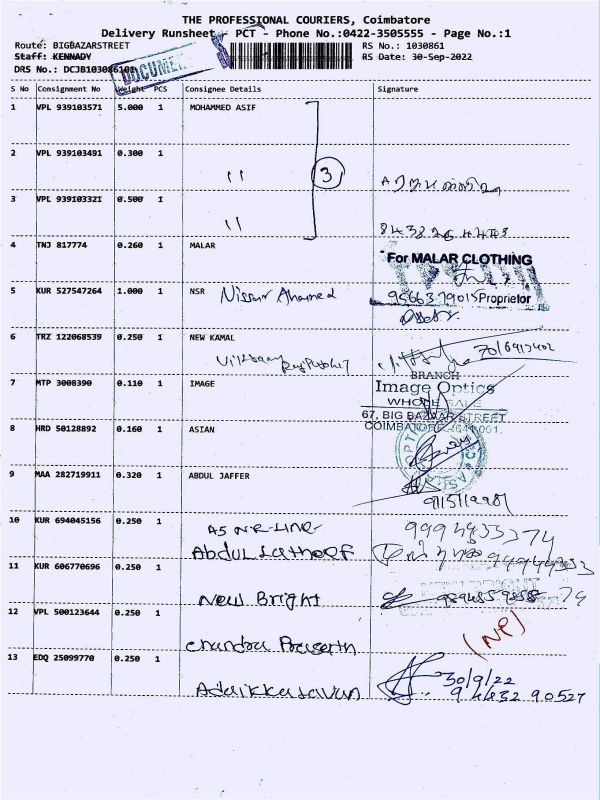 THE PROFESSIONAL COURIERS, Coimbatore
Delivery Runsheet - PCT - Phone No.:0422-3505555 - Page No.:1
Route: BIGBAZARSTREET RS No.: 1030861
Staff: KENNADY RS Date: 30-Sep-2022
DRS No.: DCJB103086101
DOCUMEN
S No Consignment No Weight PCS Consignee Details Signature
1 VPL 939103571 5.000 1 MOHAMMED ASIF
2 VPL 939103491 0.300 1 " 3
3 VPL 939103321 0.500 1 "
4 TNJ 817774 0.260 1 MALAR
For MALAR CLOTHING
5 KUR 527547264 1.000 1 NSR Nissar Ahamed
9566379015 Proprietor
6 TRZ 122068539 0.250 1 NEW KAMAL
BRANCH
7 MTP 3008390 0.110 1 IMAGE
Image Optics
WHOLE SALE
67, BIG BAZAAR STREET
COIMBATORE - 641 001.
8 HRD 50128892 0.160 1 ASIAN
9 MAA 282719911 0.320 1 ABDUL JAFFER
10 KUR 694045156 0.250 1
Abdul Latheef
11 KUR 606770696 0.250 1
New Bright
NEW BRIGHT
12 VPL 500123644 0.250 1
Chandra Prasanth (NP)
13 EDQ 25099770 0.250 1
Adaikkalavan 30/9/22
94432 90527